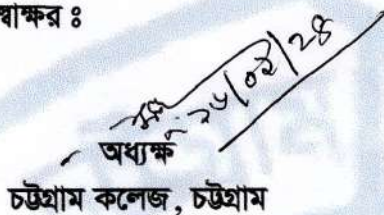 স্বাক্ষর ঃ
২৬/০২/২৪
অধ্যক্ষ
চট্টগ্রাম কলেজ, চট্টগ্রাম